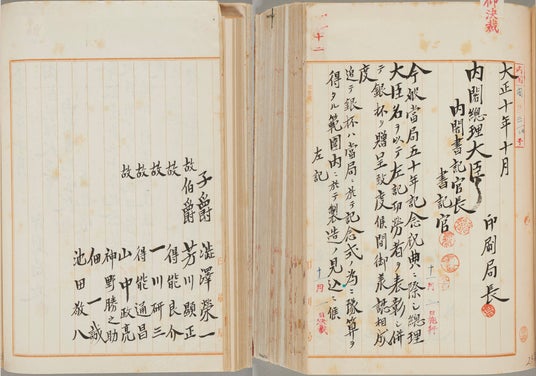 大正十年十月
印刷局長
内閣總理大臣
内閣書記官長
書記官
今般當局五十年記念祝典ニ際シ總理
大臣名ヲ以テ左記功労者ヲ表彰シ併
テ銀杯ヲ贈呈致度候間御承認相成
度
追テ銀杯ハ當局ニ於テ記念式ノ為ニ豫算ヲ
得タル範囲内ニ於テ製造ノ見込ニ候
左記
子爵 澁澤榮一
故伯爵 芳川顯正
故 得能良介
故 一川研三
得能通昌
故 山中政亮
神野勝之助
佃一誠
池田敬八